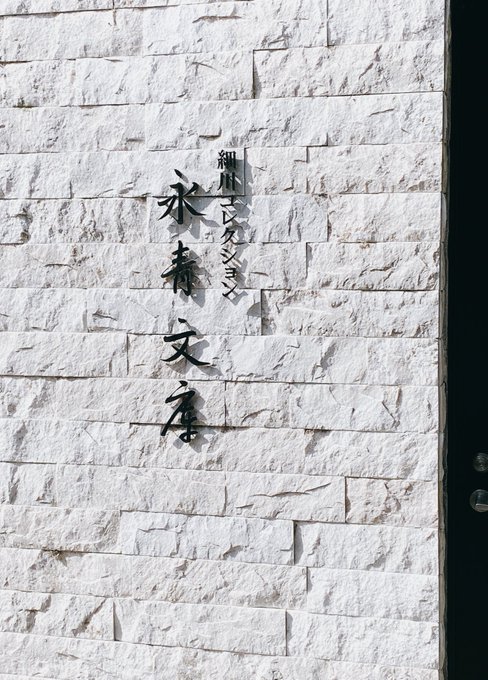 細川コレクション
永青文庫